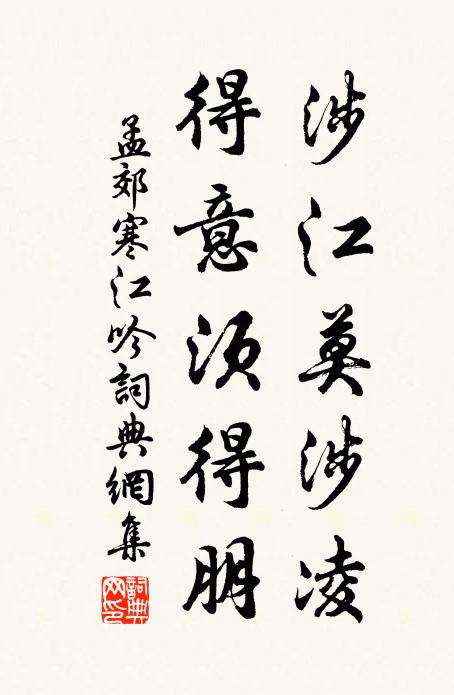 涉江莫涉凌
得意须得朋
孟郊寒江吟詞典網集
詞典网印